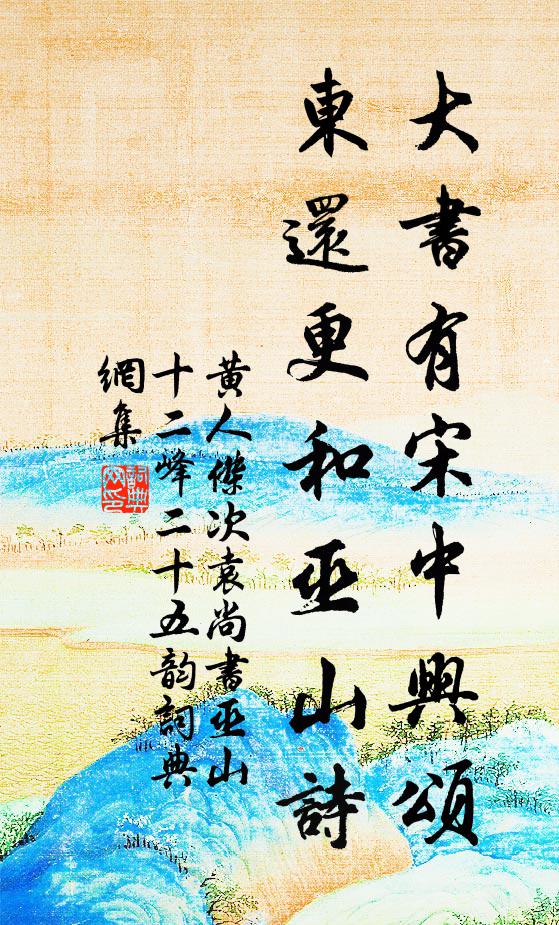 大書有宋中興頌
東還更和巫山詩
黄人傑次袁尚書巫山
十二峰二十五韵詞典
網集